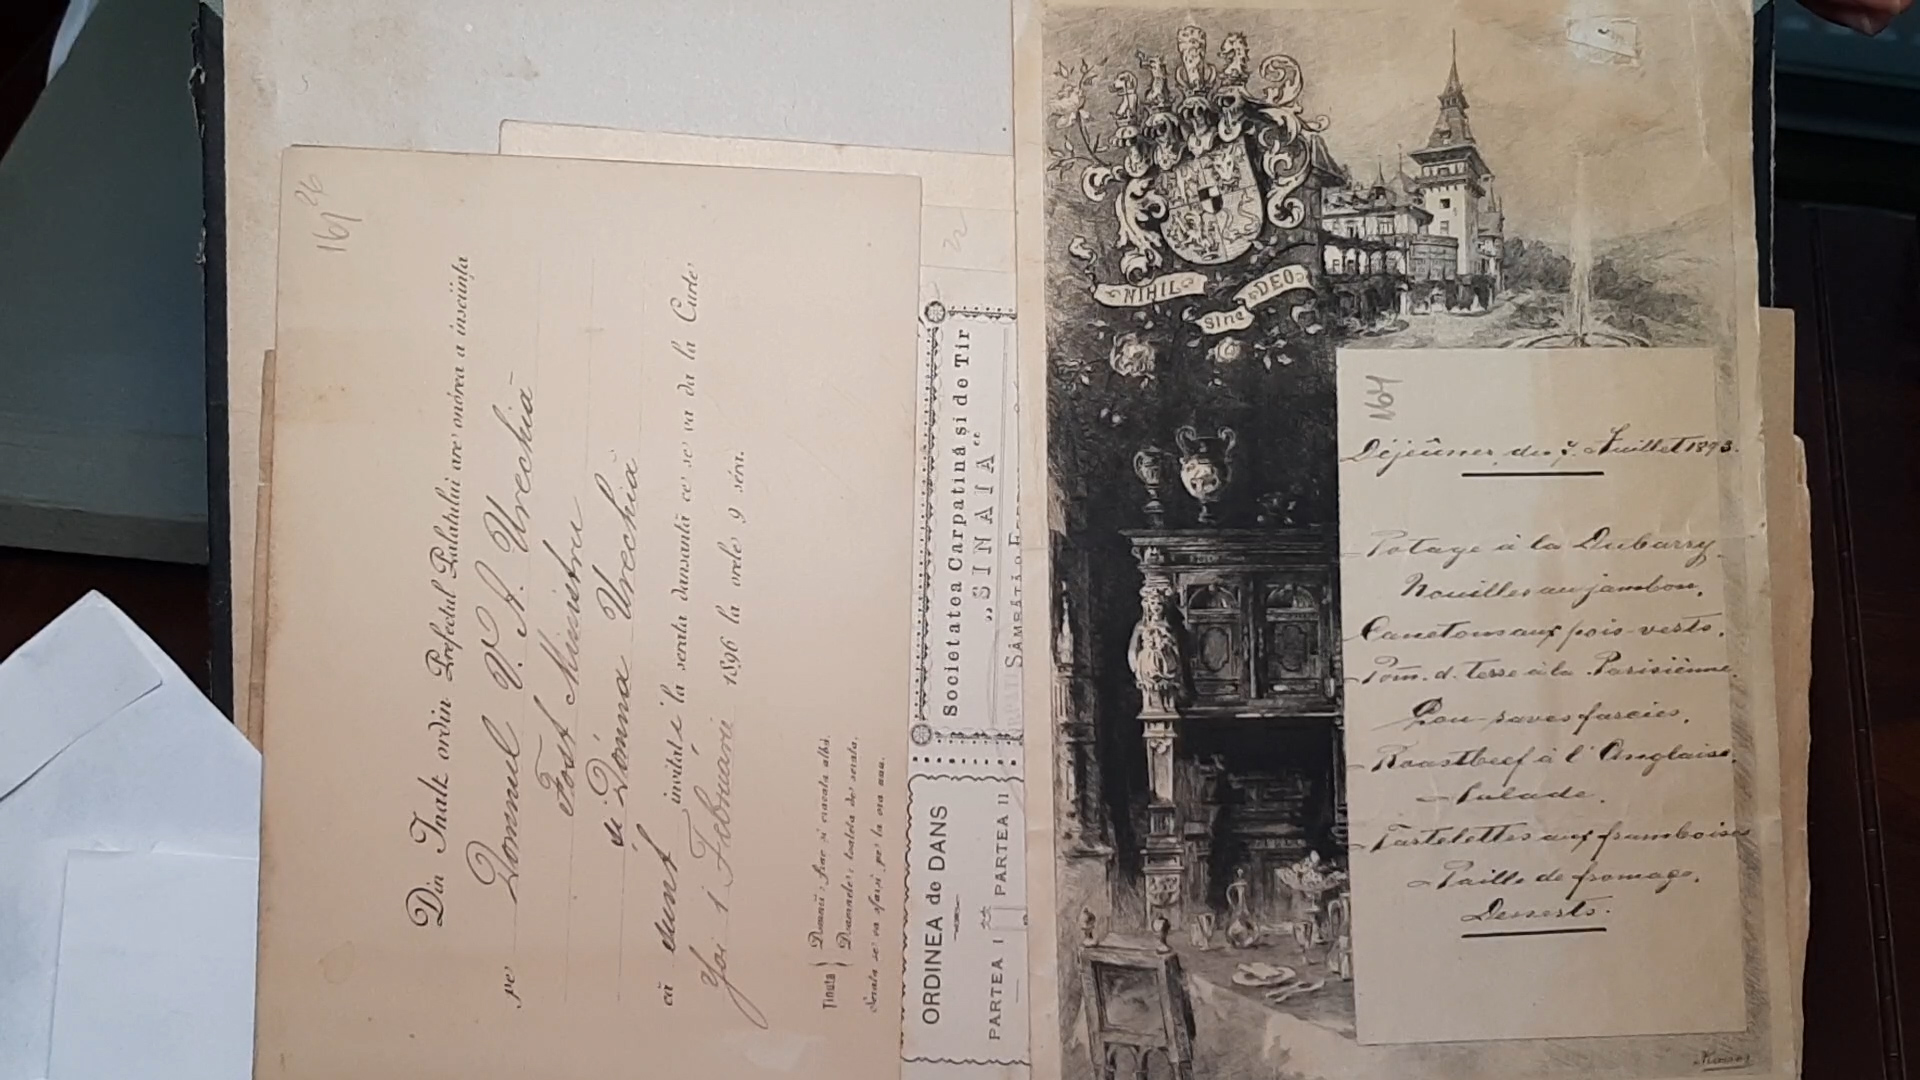 164 26
Din Inalt ordin Prefectul Palatului are onórea a însciința
pe Domnul V. A. Urechiă
Fost Ministru
și Dómna Urechiă
că sunt invitați la serata dansantă ce se va da la Curte,
Joi 1 Februarie 1896 la orele 9 séra.
Ținuta { Domnii: frac și cravata albă.
Doamnele: toaleta de serata.
Serata se va sfârși pe la ora una.
Societatea Carpatină și de Tir
„SINAIA"
SÂMBĂTĂ
ORDINEA de DANS
PARTEA I
PARTEA II
NIHIL
sine
DEO
164
Déjeûner du 7. Juillet 1893.
Potage à la Dubarry
Nouilles au jambon,
Canetons aux pois-verts.
Pom. d. terre à la Parisiènne.
Pou-raves farcies.
Roastbeef à l'Anglaise.
Salade.
Tartelettes aux framboises
Paille de fromage.
Desserts.